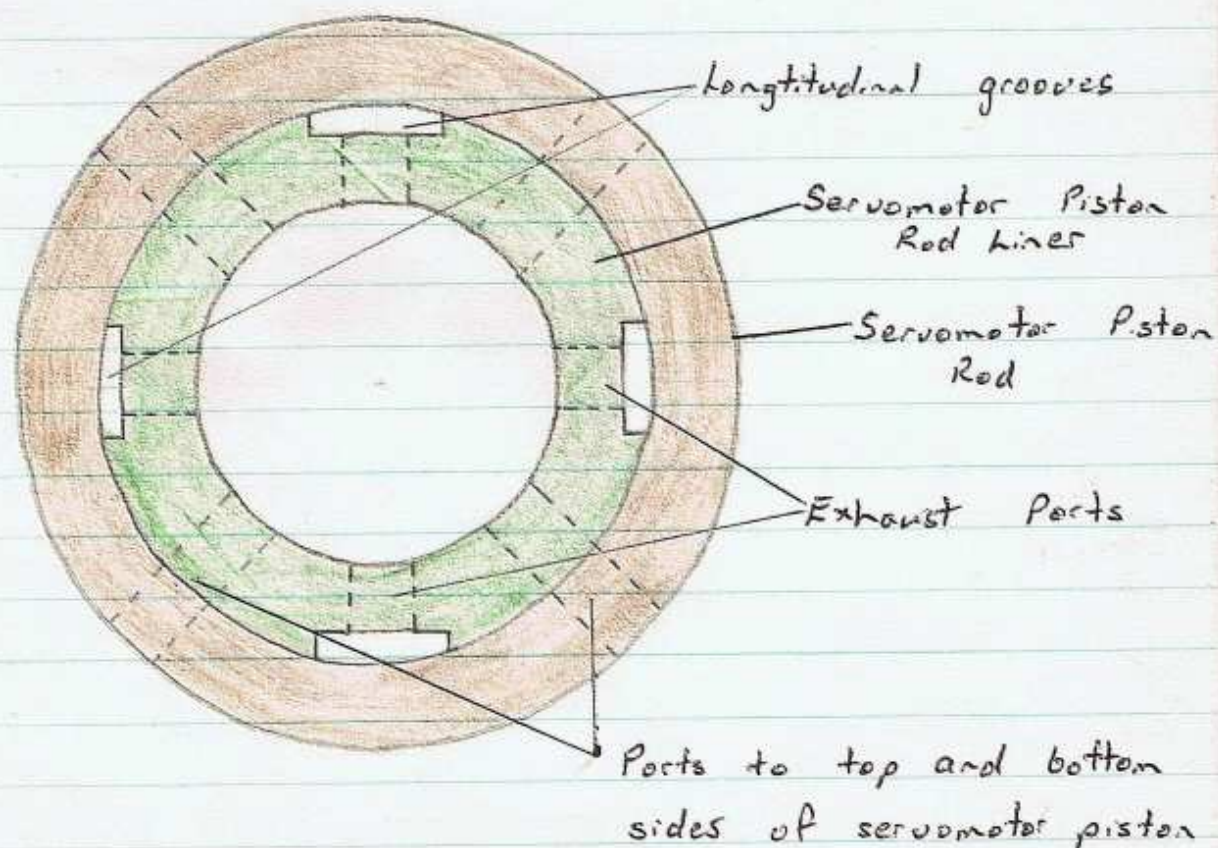 Longtitudinal grooves
Servomotor Piston
Rod Liner
Servomotor Piston
Rod
Exhaust Ports
Ports to top and bottom
sides of servomotor piston